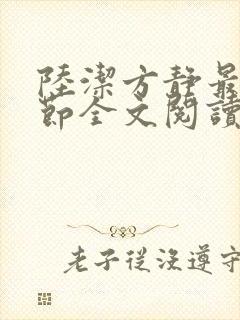 陸潔方靜最
節全文閱讀
老子從沒遵守